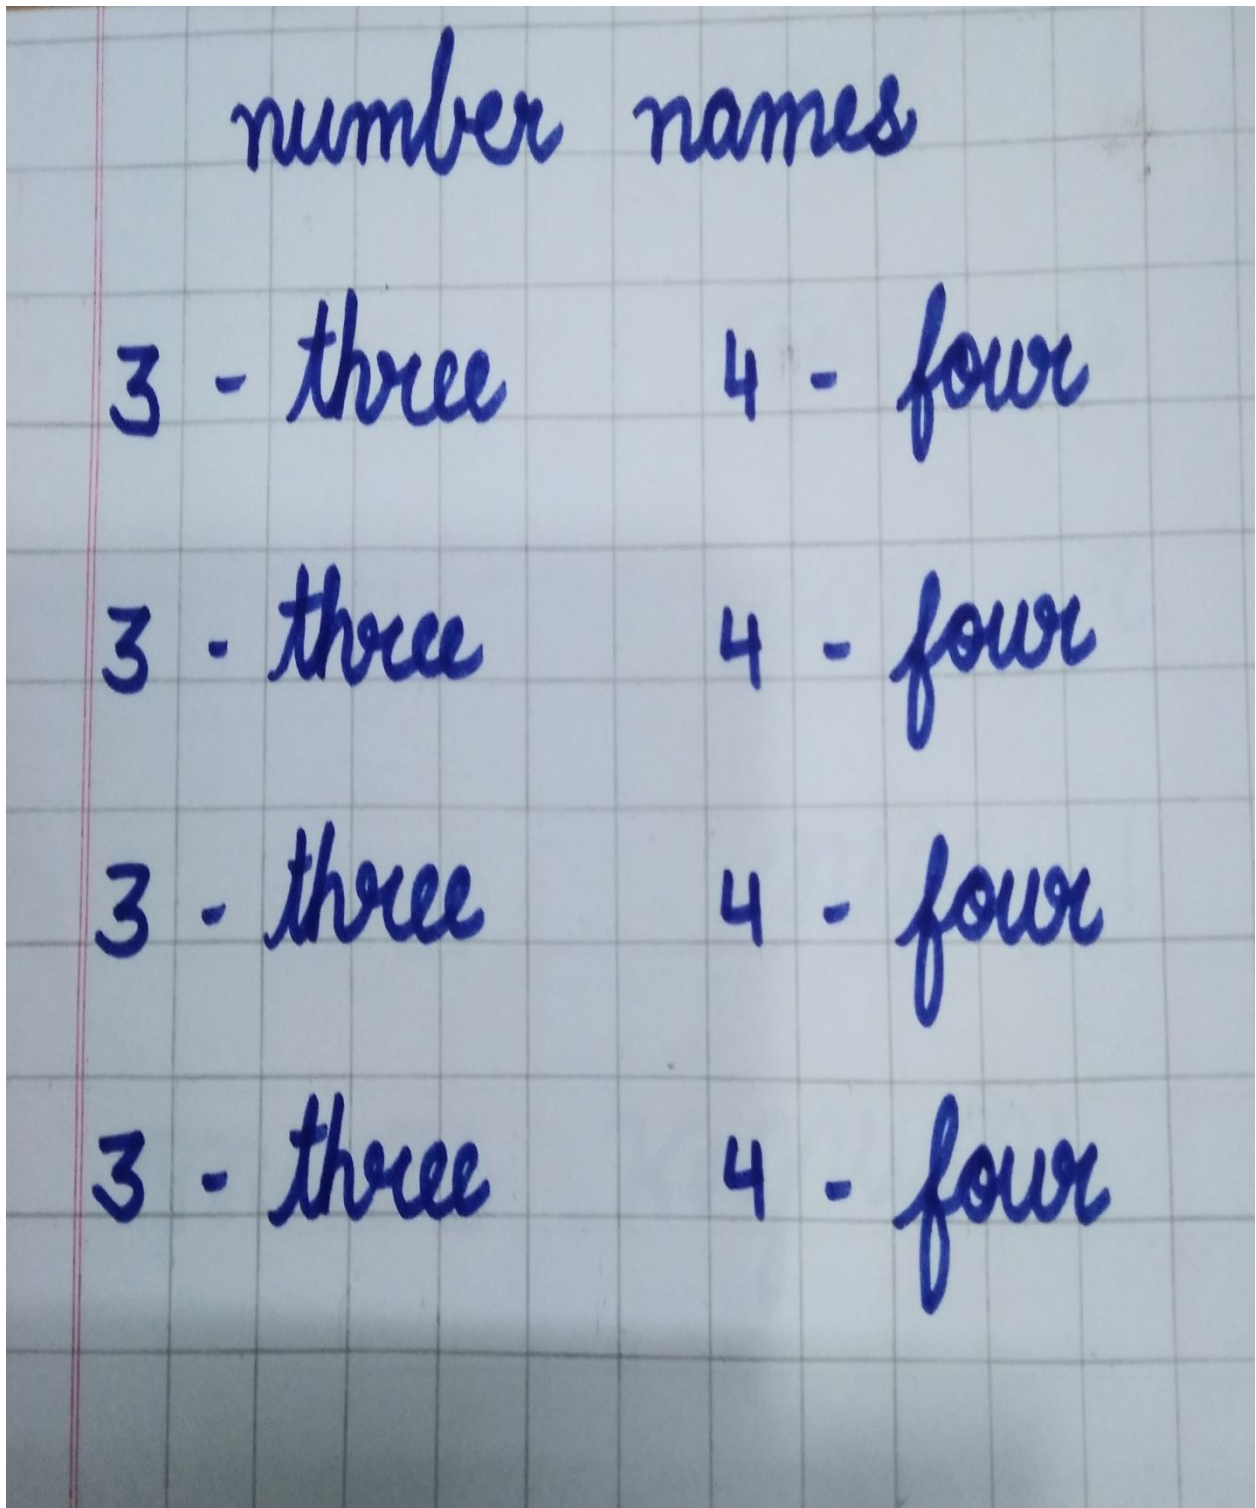 number names
3 - three 4 - four
3 - three 4 - four
3 - three 4 - four
3 - three 4 - four